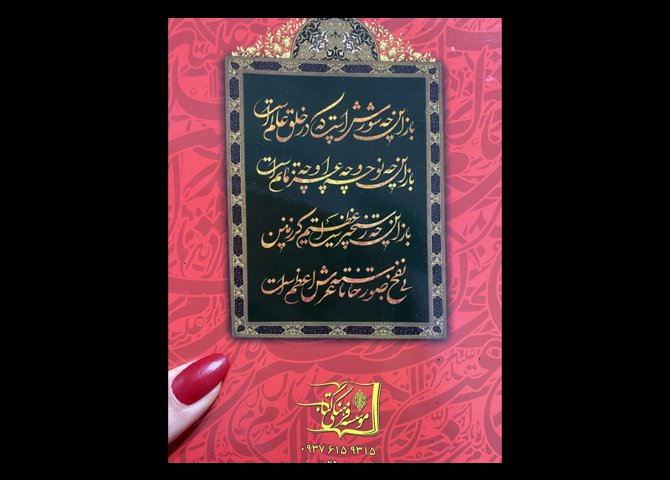 باز این چه شورش است که در خلق عالم است
باز این چه نوحه و چه عزا و چه ماتم است
باز این چه رستخیز عظیم است کز زمین
بی نفخ صور خاسته تا عرش اعظم است
موسسه فرهنگی
۰۹۳۷ ۶۱۵ ۹۳۱۵